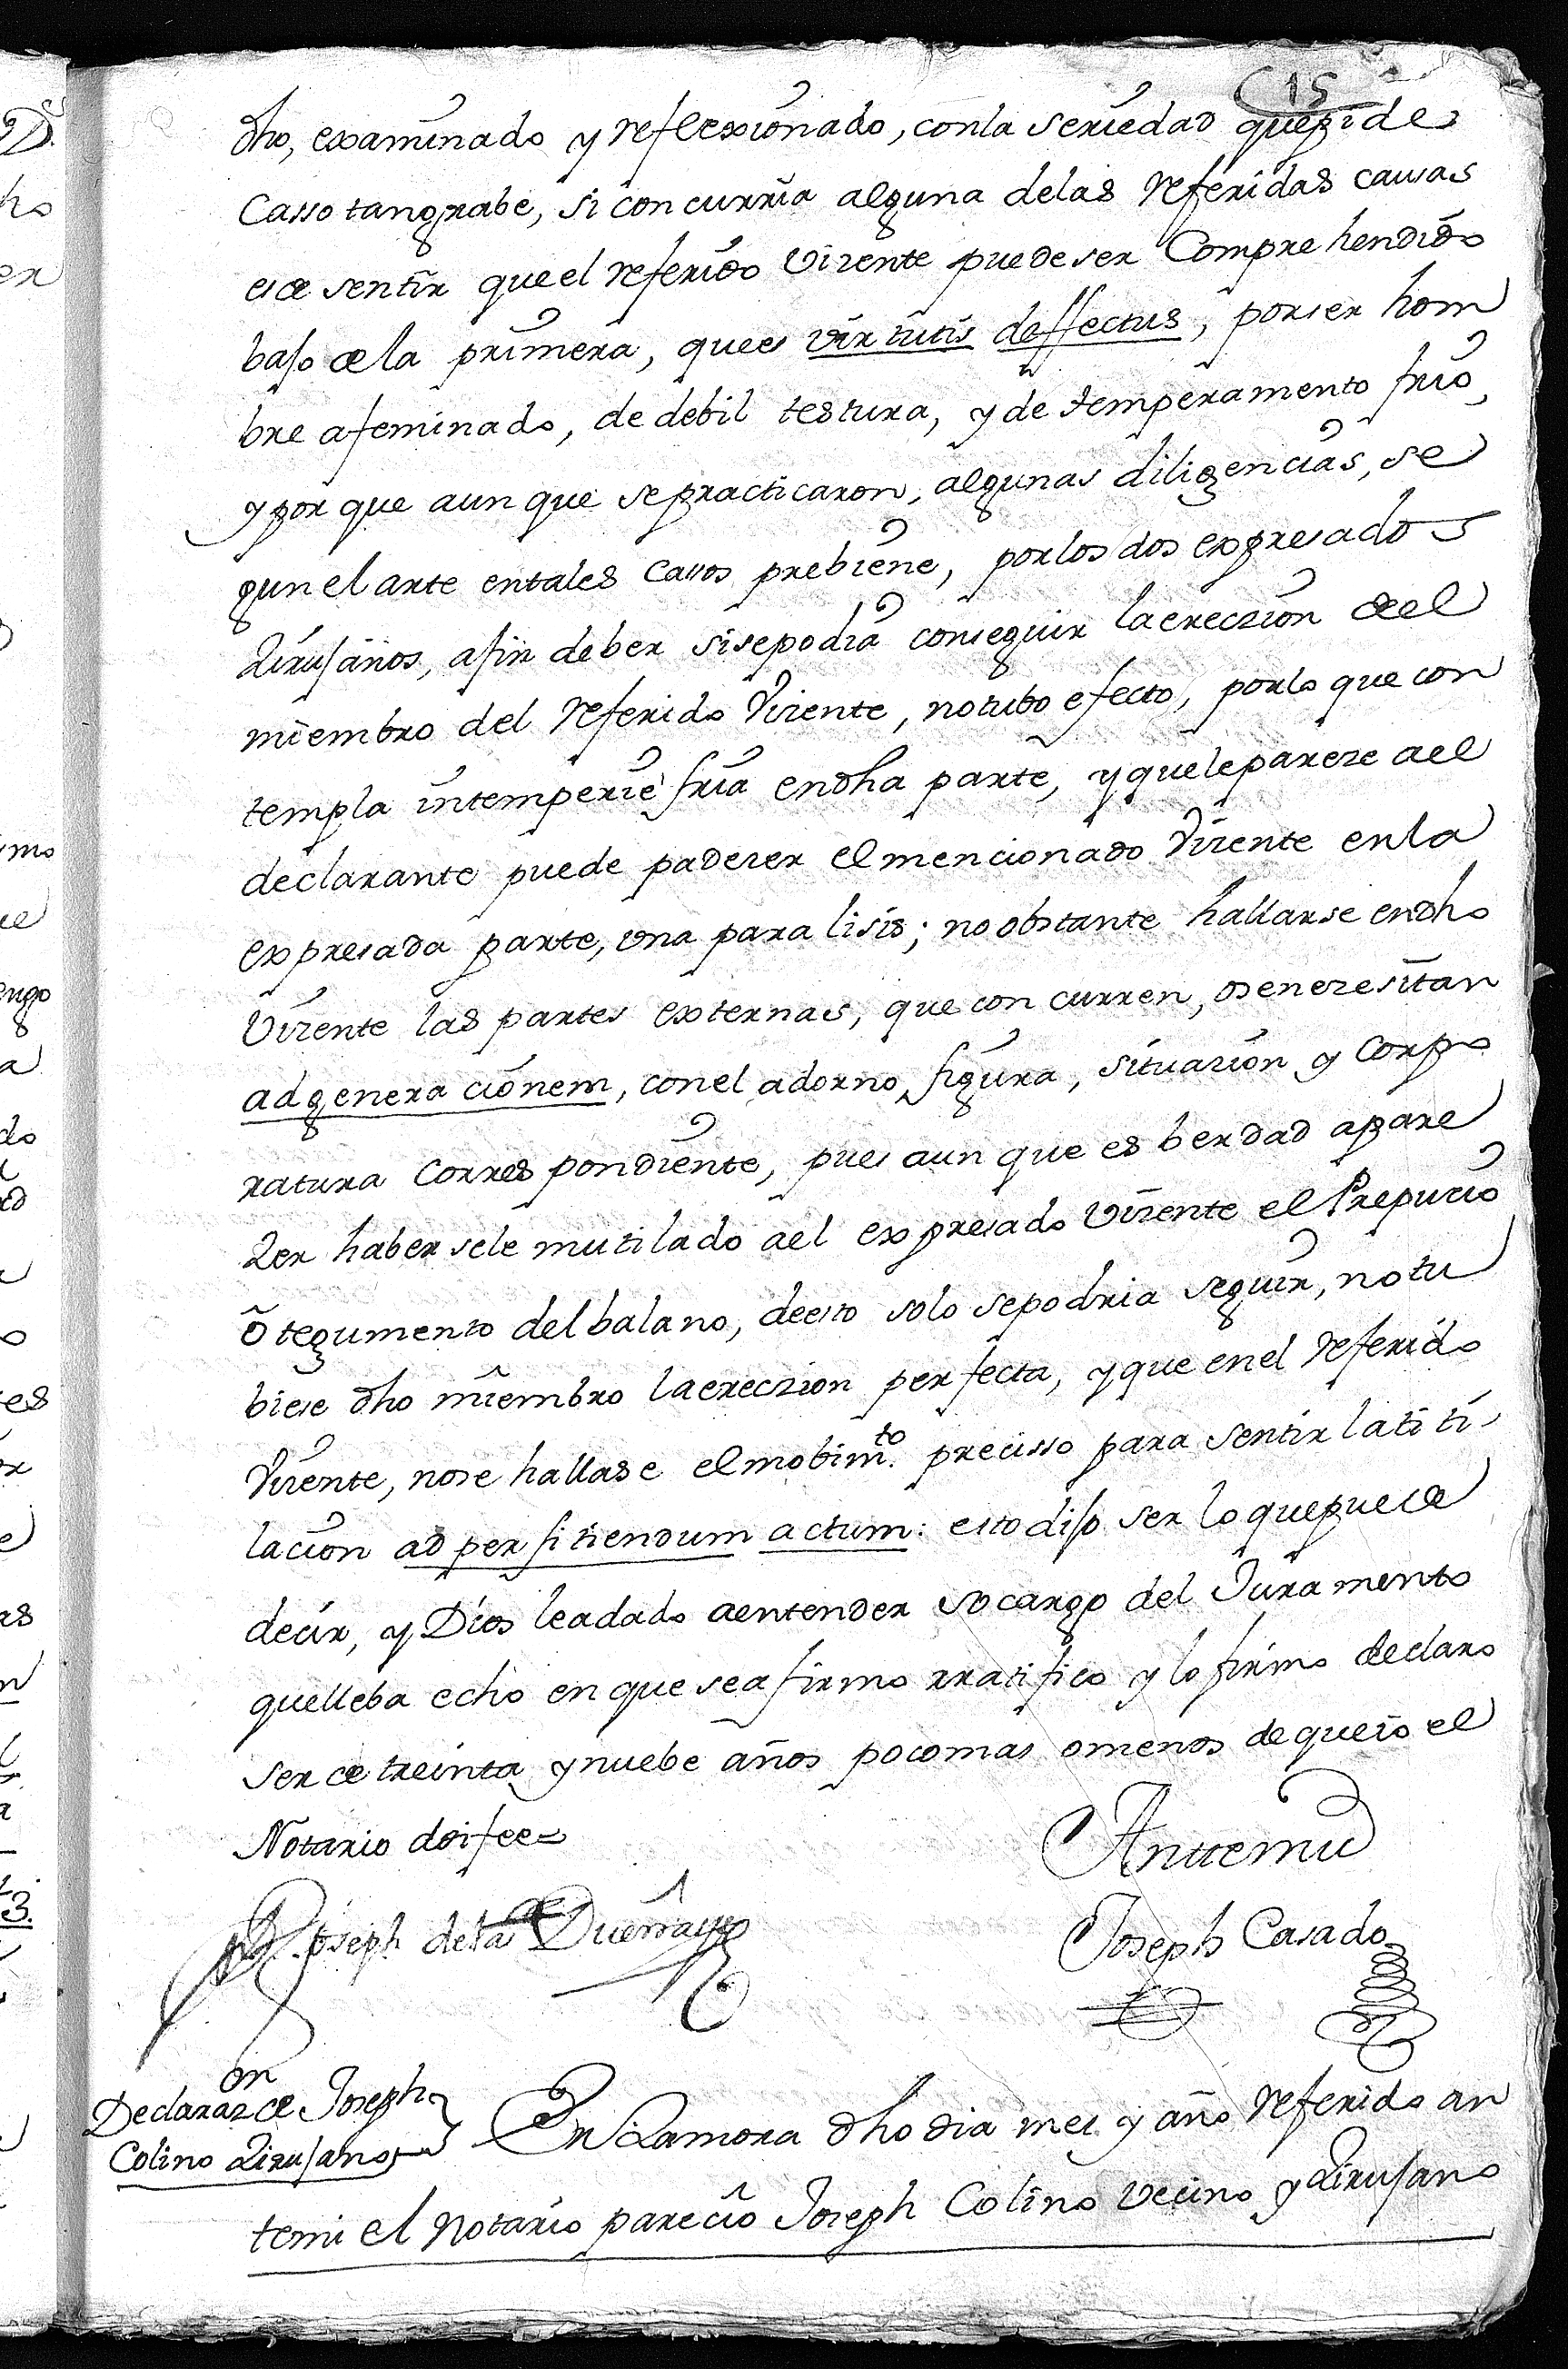 15
dho, examinado y reflexionado, con la seriedad que pide
Casso tan grabe, si concurria alguna de las referidas causas
es de sentir que el referido Vizente puede ser Comprehendido
bajo de la primera, que es virtutis deffectus, por ser hom
bre afeminado, de debil testura, y de temperamento frio,
y por que aun que se practicaron, algunas diligencias, se
gun el arte en tales Casos prebiene, por los dos expresados
Zirujanos, a fin de ber si se podia conseguir la ereczion de el
miembro del referido Vizente, no tubo efecto, por lo que con
templa intemperie fria en dha parte, y que le pareze a el
declarante puede padezer el mencionado Vizente en la
expresada parte, una paralisis; no obstante hallarse en dho
Vizente las partes externas, que concurren, o se nezesitan
ad generacionem, con el adorno, figura, situazion y Corpo
ratura Correspondiente, pues aun que es berdad apare
Zer habersele mutilado a el expresado Vizente el Prepucio
o tegumento del balano, de esto solo se podria seguir, no tu
biese dho miembro la ereczion perfecta, y que en el referido
Vizente, no se hallase el mobim.to precisso para sentir la titi
lacion ad perfitiendum actum: esto dijo ser lo que puede
decir, y Dios le a dado a entender so cargo del Juramento
que lleba echo en que se afirmo rratifico y lo firmo declaro
ser de treinta y nuebe años poco mas o menos de que io el
Notario doi fee=
Anttemi
Joseph de la Dueña
Joseph Casado
Declaraz.on de Joseph
Colino Zirujano
En Zamora dho dia mes y año referido an
temi el Notario parecio Joseph Colino Vecino y Zirujano